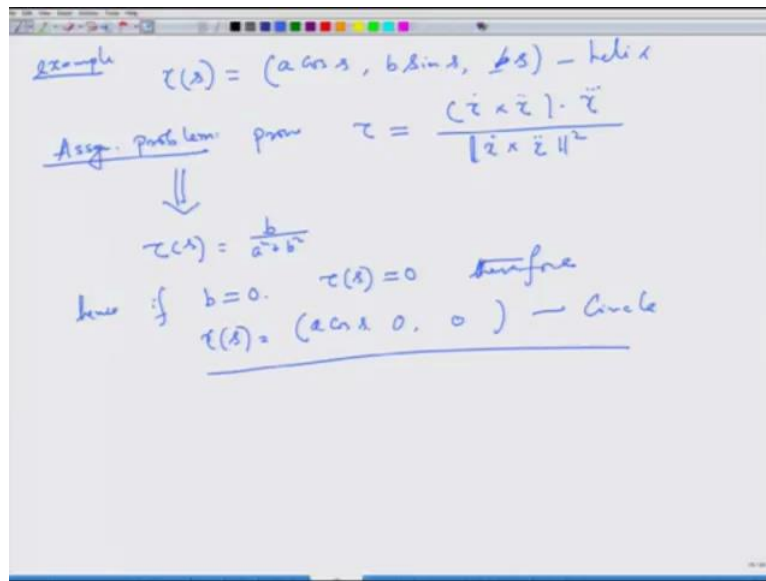 example r(s) = (a cos s, b sin s, bs) – helix
Assgn. problem: prove τ = (ṙ × r̈) · r⃛ / ‖ṙ × r̈‖²
⇓
τ(s) = b / a² + b²
hence if b = 0. τ(s) = 0 therefore
r(s) = (a cos s 0, 0) – Circle